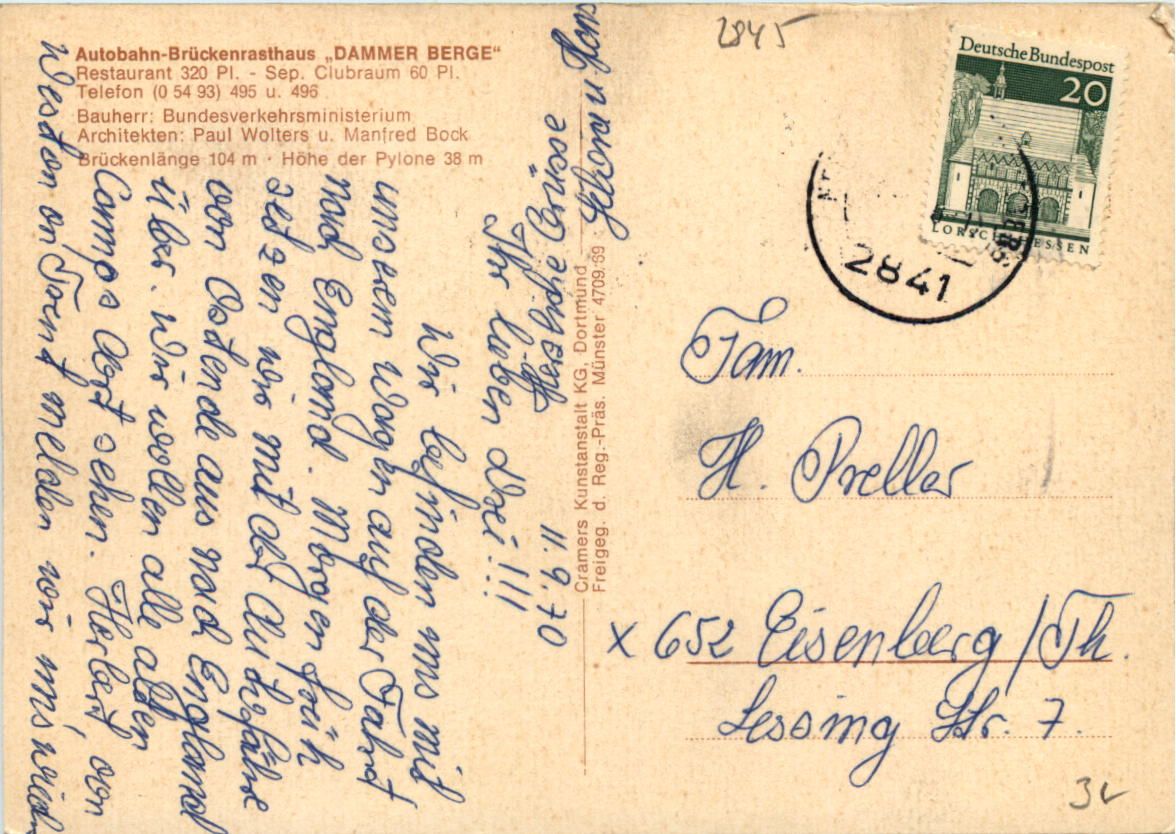 Autobahn-Brückenrasthaus „DAMMER BERGE“
Restaurant 320 Pl. - Sep. Clubraum 60 Pl.
Telefon (0 54 93) 495 u. 496
Bauherr: Bundesverkehrsministerium
Architekten: Paul Wolters u. Manfred Bock
Brückenlänge 104 m · Höhe der Pylone 38 m
11.9.70
Ihr lieben drei!!!
Wir befinden uns mit
unseren Wagen auf der Fahrt
nach England. Morgen früh
setzen wir mit der Autofähre
von Ostende aus nach England
über. Wir wollen alle alten
Camps dort sehen. Herbert, von
Weston on Trent melden wir uns wieder
Herzliche Grüsse
u. Hans
Cramers Kunstanstalt KG, Dortmund
Freigeg. d. Reg.-Präs. Münster 4709/69
2845
Deutsche Bundespost
20
LORSCH/HESSEN
2841
Fam.
H. Preller
X 652 Eisenberg/Th.
Lessing Str. 7.